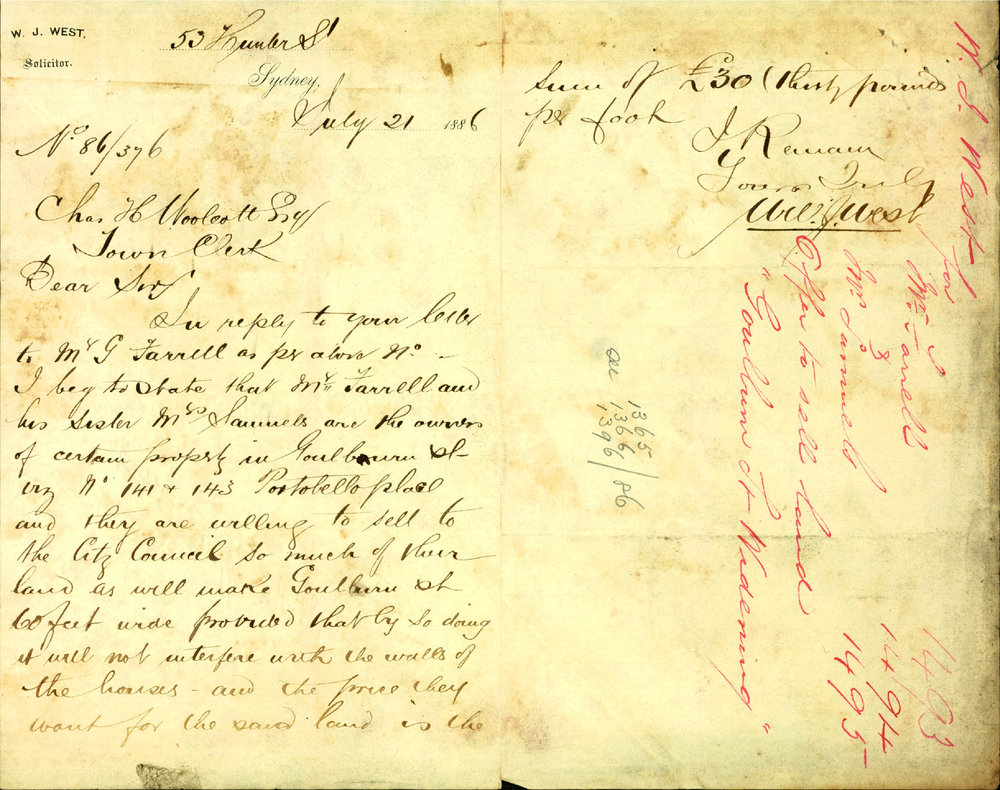 W. J. WEST,
Solicitor.
53 Hunter St
Sydney,
July 21 1886
No 86/376
Chas H Woolcott Esq
Town Clerk
Dear Sir
In reply to your letter
to Mr G Farrell as per above No -
I beg to state that Mr Farrell and
his sister Mrs Samuels are the owners
of certain property in Goulbourn St
viz No 141 & 143 Portobello place
and they are willing to sell to
the City Council so much of their
land as will make Goulburn St
60 feet wide provided that by so doing
it will not interfere with the walls of
the houses - and the price they
want for the said land is the
sum of £30 (thirty pounds
per foot
I Remain
Yours Truly
Will. J. West
see 1365
1366
1396/86
W. J. West for
Mr Farrell 1493
& Mrs Samuels 1494
1495
Offer to sell land
"Goulburn St Widening"